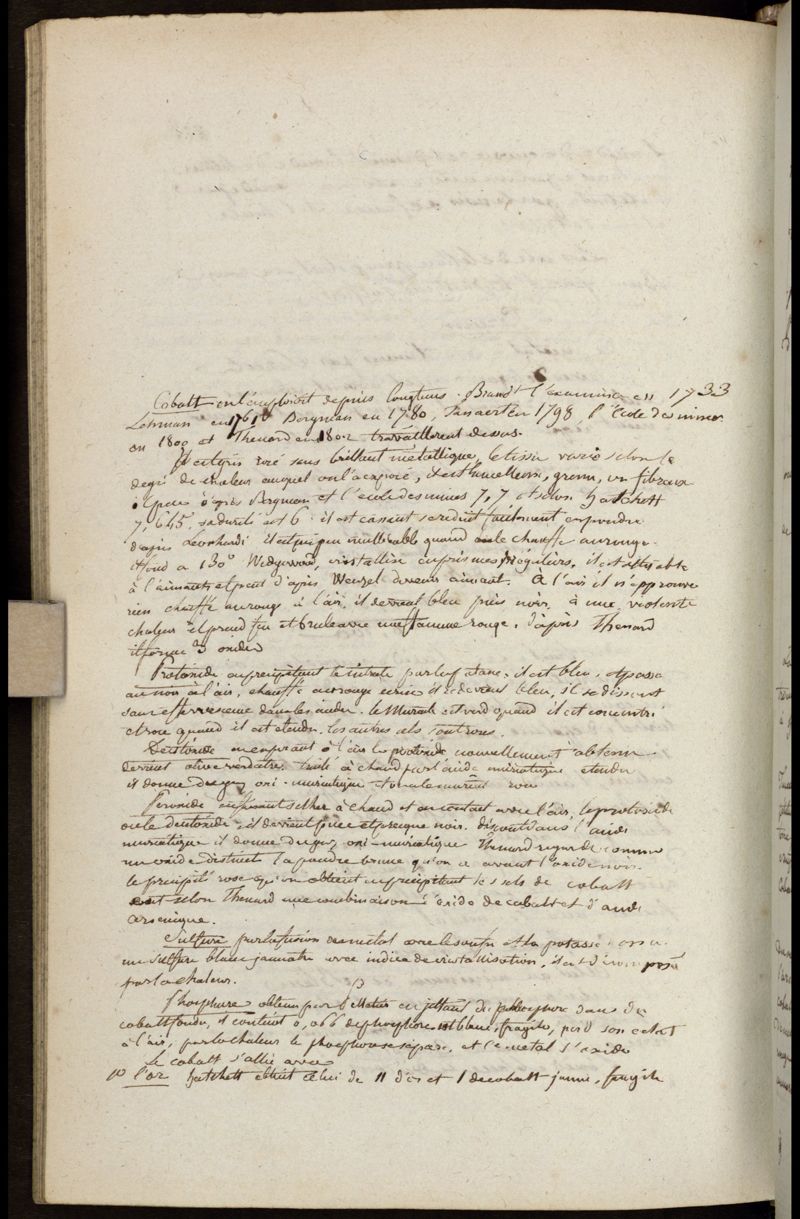 Cobalt on l'emploioit depuis longtems. Brandt l'examina en 1733
Lehman en 1761 Bergman en 1780, Tassaert en 1798, l'école des mines
en 1800 et Thenard en 1802 travaillerent dessus.
Il est gris rosé sans brillant métallique, le tissu varie selon le
degré de chaleur auquel on l'a exposé, il est lamelleux, grenu, ou fibreux
il pese d'après Bergman et l'école des mines 7,7 et selon Hatchett
7,645. sa dureté est 6. il est cassant se reduit facilement en poudre
d'après Leonhardi il est un peu malleable quand on le chauffe au rouge.
il fond a 130° Wedgwood, cristallise en prismes irréguliers, il est attirable
à l'aimant et peut d'après Wenzel devenir aimant. A l'air il n'éprouve
rien chauffé au rouge à l'air, il devient bleu puis noir, à une violente
chaleur il prend feu et brule avec une flamme rouge, d'après Thenard
il forme 3 oxides
Protoxide en precipitant le nitrate par la potasse. il est bleu, et passe
au noir à l'air, chauffé au rouge cerise il redevient bleu, il se dissout
sans effervescence dans les acides. le Muriate est verd quand il est concentré
et rose quand il est etendu. les autres sels sont roses.
Deutoxide en exposant à l'air le protoxide nouvellement obtenu
devient olive verdatre. traité à chaud par l'acide muriatique etendu
il donne du gaz oxi-muriatique et un muriate rose
Peroxide en faisant secher à chaud et au contact avec l'air, le protoxide
ou le deutoxide, il devient puce et presque noir. dissout dans l'acide
muriatique il donne du gaz oxi-muriatique Thenard regarde comme
un oxide distinct la poudre brune qu'on a avant l'oxide noir
le precipité rose qu'on obtient en precipitant les sels de cobalt
est selon Thenard une combinaison d'oxide de cobalt et d'acide
arsenique.
Sulfure par la fusion du metal avec le soufre et la potasse on a
un sulfure blanc jaunatre avec indice de cristallisation, il est décomposé
par la chaleur.
Phosphure obtenu par Pelletier en jettant du phosphore dans du
cobalt fondu, il contient 0,066 de phosphore est blanc, fragile, perd son eclat
à l'air, par la chaleur le phosphore se separe, et le metal s'oxide
Le cobalt s'allie avec
1° l'or Hatchett obtint celui de 11 d'or et 1 de cobalt jaune, fragile